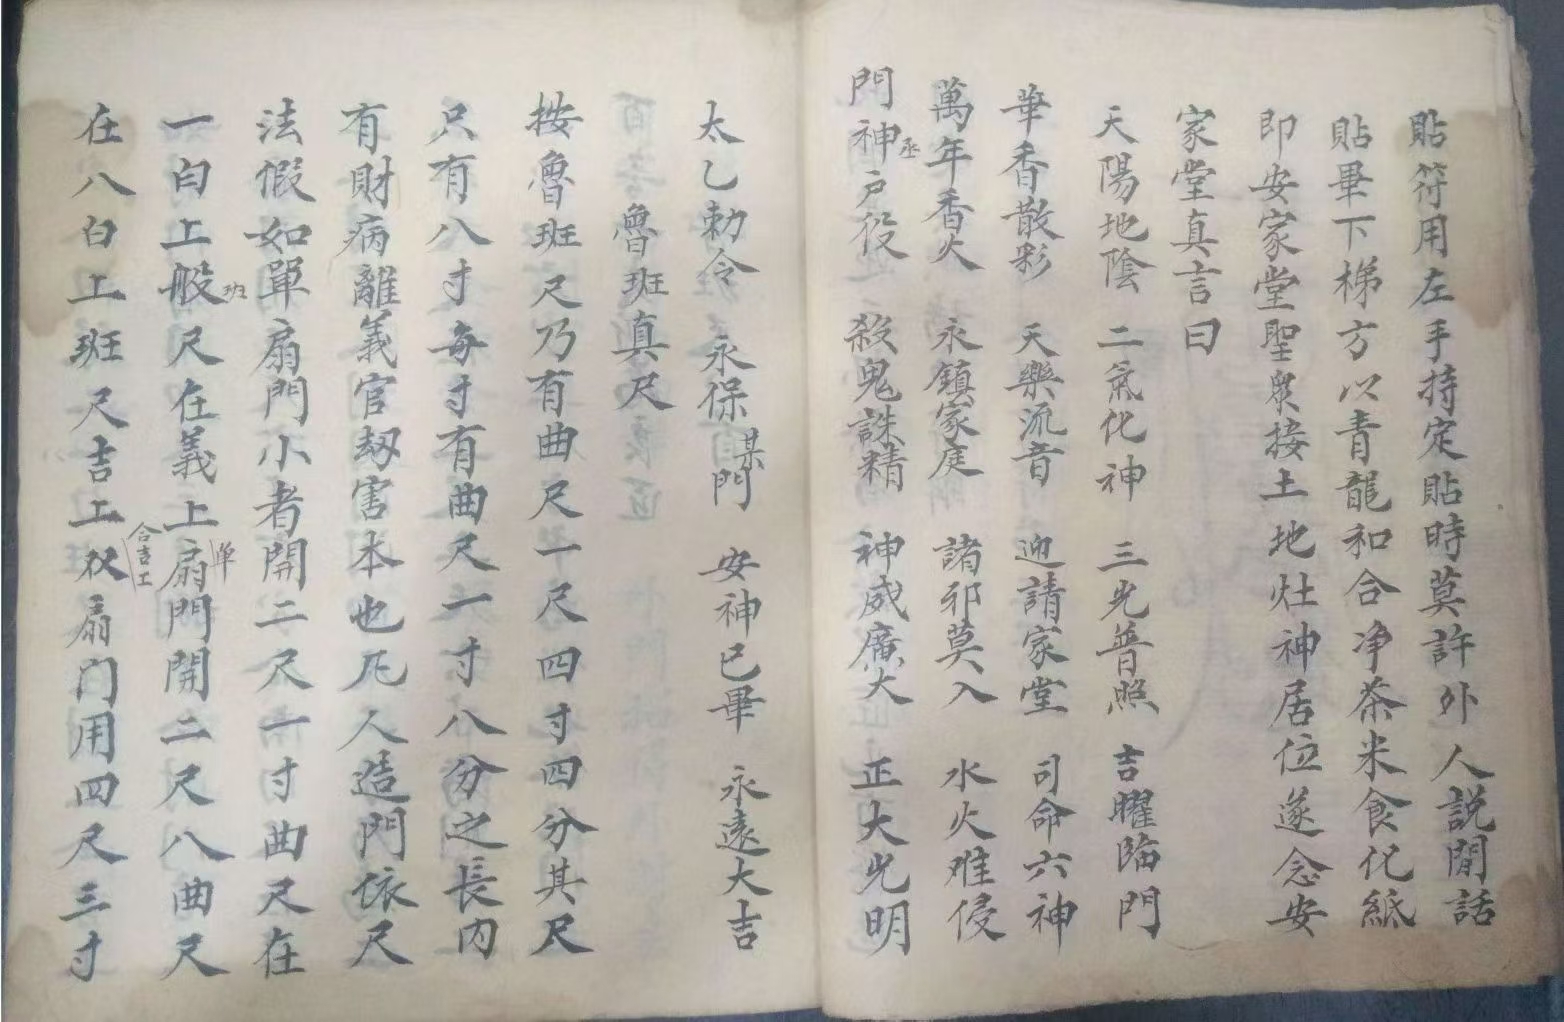 貼符用左手持定貼時莫許外人説閒話
貼畢下梯方以青龍和合净茶米食化紙
即安家堂聖衆接土地灶神居位遂念安
家堂真言曰
天陽地陰 二氣化神 三光普照 吉曜臨門
華香散彩 天樂流音 迎請家堂 司命六神
萬年香火 永鎮家庭 諸邪莫入 水火难侵
門神户役 殺鬼誅精 神威廣大 正大光明
丞
太乙勅令 永保某門 安神已畢 永遠大吉
魯班真尺
按魯班尺乃有曲尺一尺四寸四分其尺
只有八寸每寸有曲尺一寸八分之長内
有財病離義官刼害本也凡人造門依尺
法假如單扇門小者開二尺一寸曲尺在
一白上般尺在義上扇門開二尺八曲尺
班
單
在八白工班尺吉工双扇门用四尺三寸
合吉工